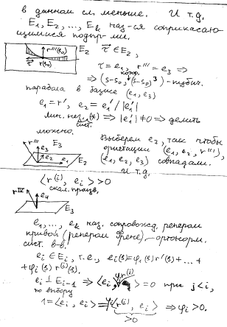 в данном сл. меньше. И т.д.
E₁, E₂, ..., Eₖ наз-ся соприкасаю-
щимися подпр-ми.
E₂ τ ∈ E₂,
τ = e₂, r''' = e₃ ⇒
⇒ (s-s₀, (s-s₀)³) - кубич.
парабола в базисе (e₁, e₃)
e₁ = r', e₂ = e₁' / |e₁'|
лин. нез. (*) ⇒ |e₁'| ≠ 0 ⇒ делить
можно.
Выберем e₃ так, чтобы
ориентации (e₁, e₂, r'''),
(e₁, e₂, e₃) совпадали.
И т.д.
⟨r⁽ⁱ⁾, eᵢ⟩ > 0
скал. произв.
e₁, ..., eₖ наз. сопровожд. репером
кривой (репером Френе), — ортонорм.
сист. в-в.
eᵢ ∈ Eᵢ, т.е. eᵢ(s) = φ₁(s) r'(s) + ... +
+ φᵢ(s) r⁽ⁱ⁾(s).
eᵢ ⊥ Eᵢ₋₁ ⇒ = 0 при j < i,
по выбору
1 = ⟨eᵢ, eᵢ⟩ = φᵢ⟨r⁽ⁱ⁾, eᵢ⟩ ⇒ φᵢ > 0.
> 0